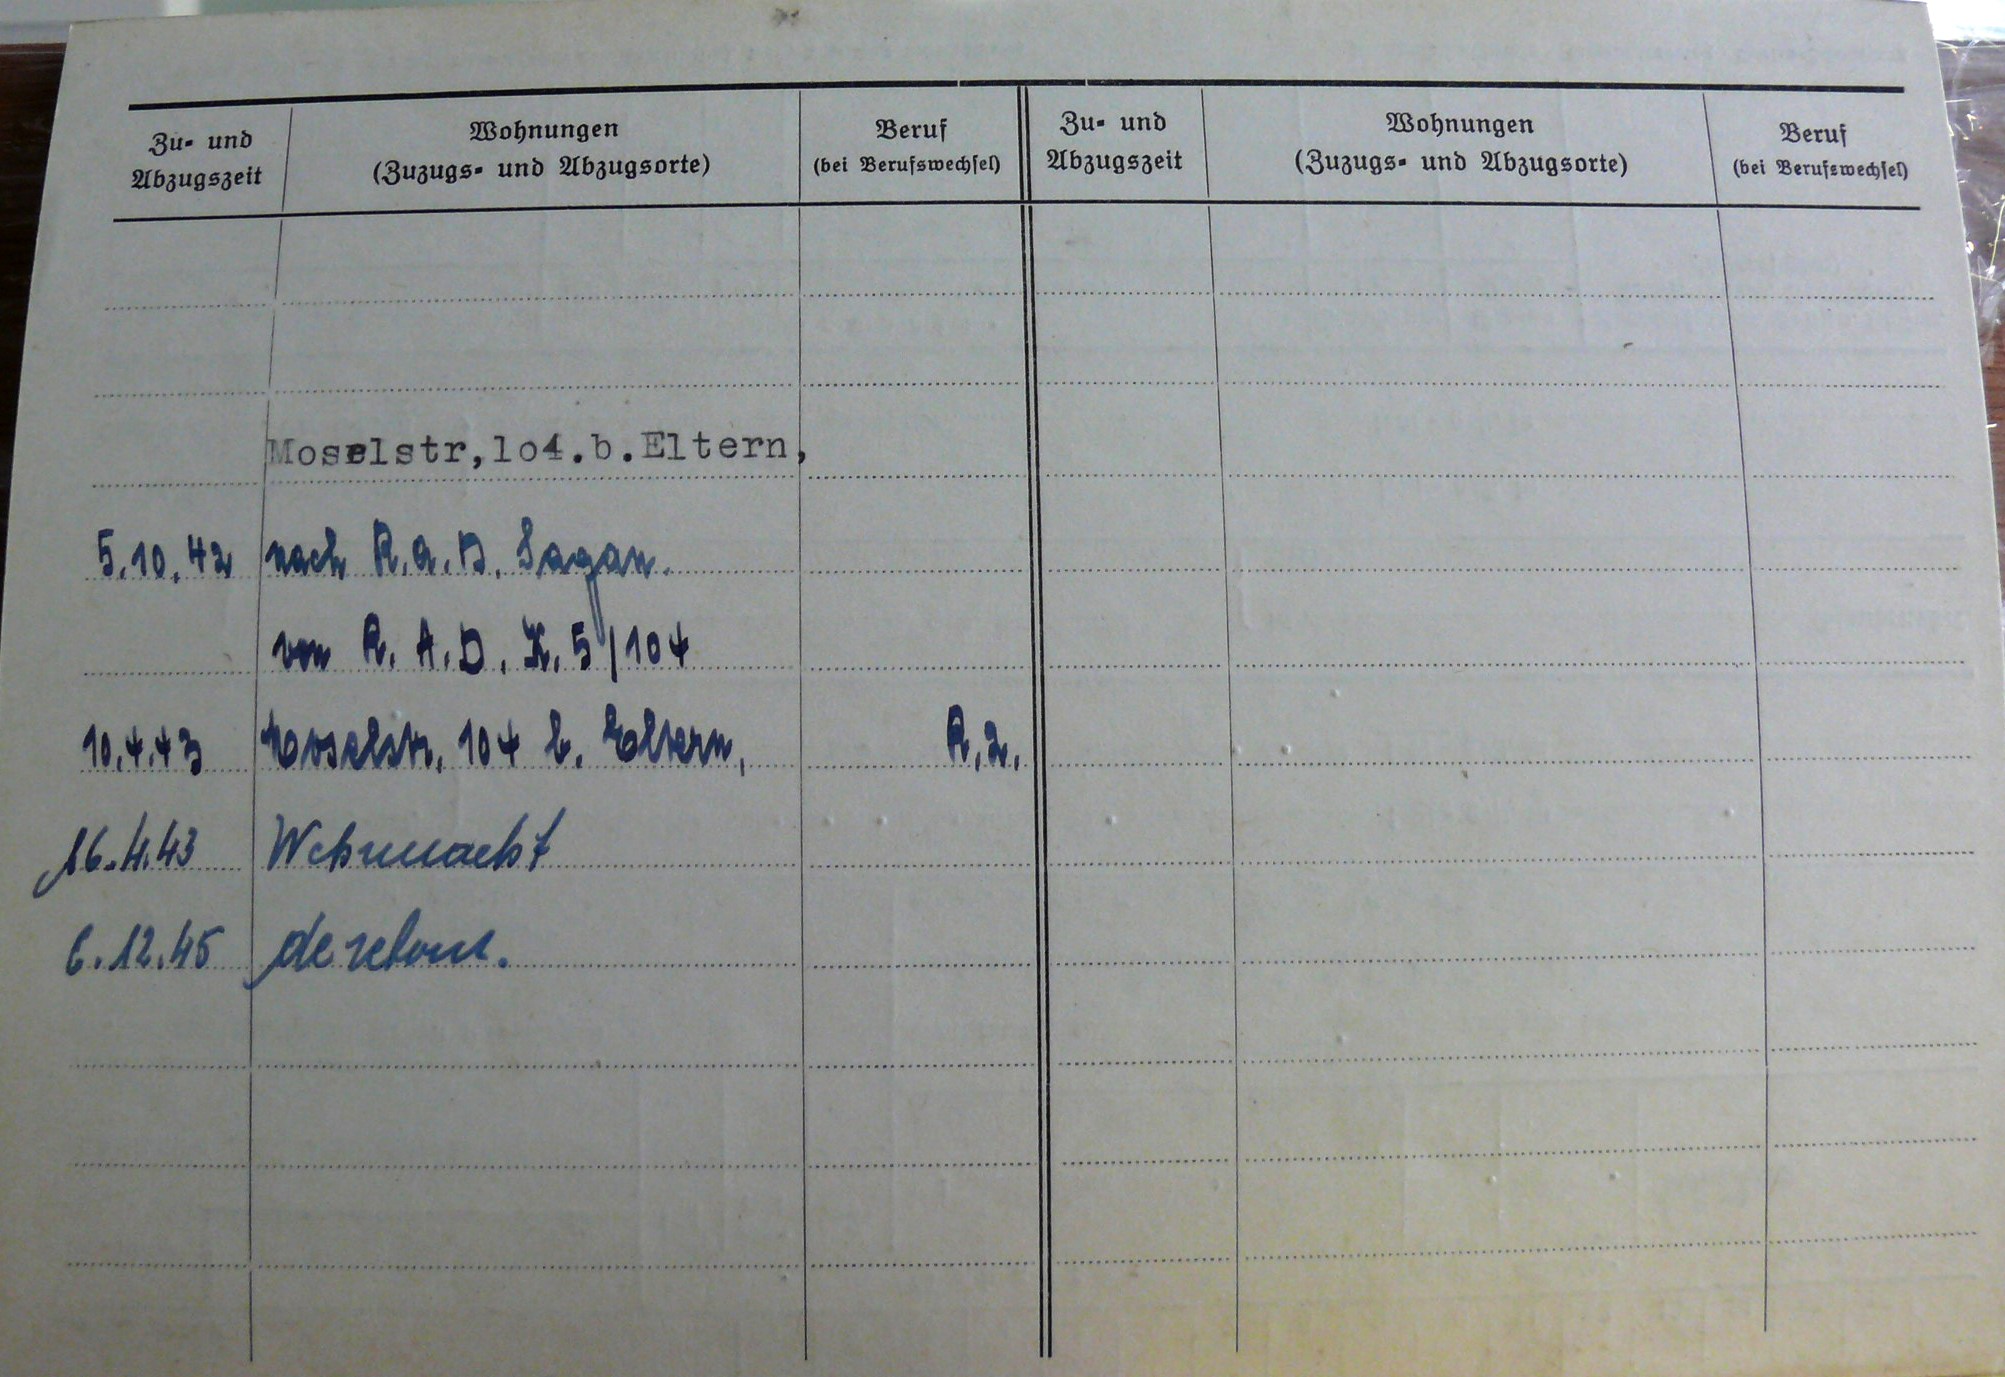 Zu- und Abzugszeit
Wohnungen
(Zuzugs- und Abzugsorte)
Beruf
(bei Berufswechsel)
Zu- und Abzugszeit
Wohnungen
(Zuzugs- und Abzugsorte)
Beruf
(bei Berufswechsel)
Moselstr,lo4.b.Eltern,
5.10.42 nach R.A.D. Sagan.
von R.A.D. K.5/104
10.4.43 Moselstr. 104 b. Eltern, R.2.
16.4.43 Wehrmacht
6.12.45 de retour.